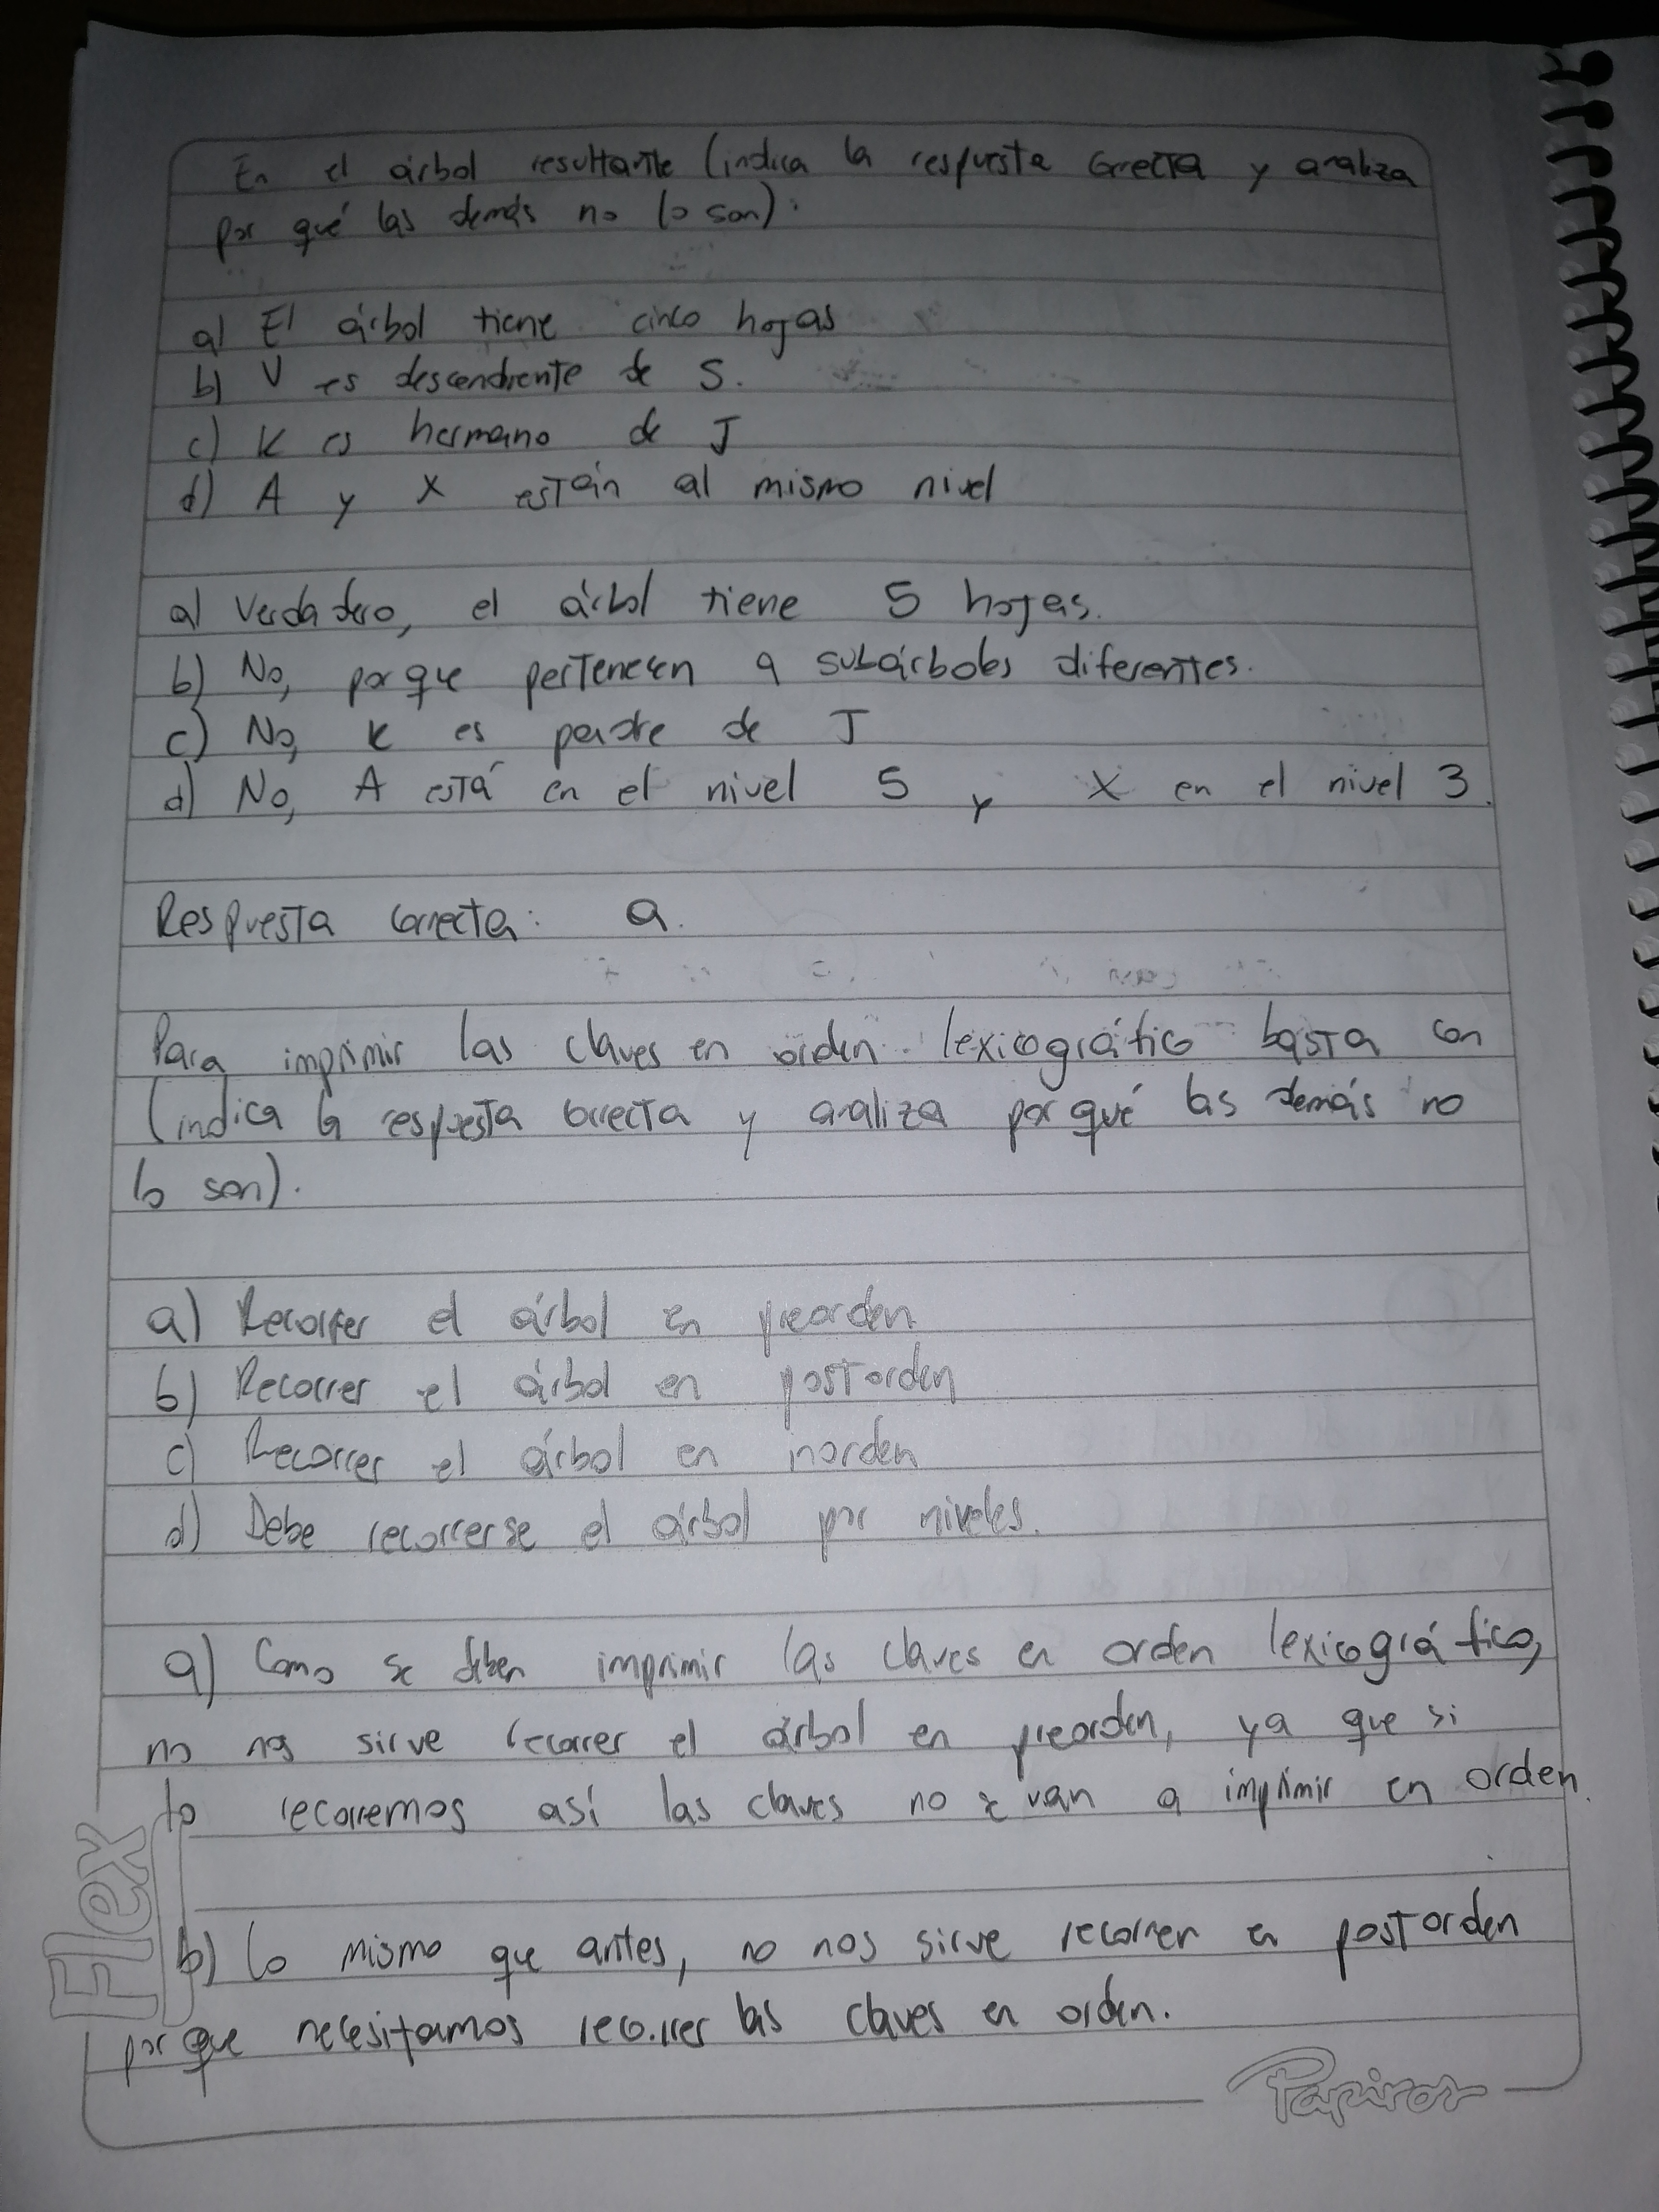 En el árbol resultante (indica la respuesta correcta y analiza
por qué las demás no lo son):
a) El árbol tiene cinco hojas
b) V es descendiente de S.
c) K es hermano de J
d) A y X están al mismo nivel
a) Verdadero, el árbol tiene 5 hojas.
b) No, porque pertenecen a subárboles diferentes.
c) No, K es padre de J
d) No, A está en el nivel 5 y X en el nivel 3.
Respuesta correcta: a.
Para imprimir las claves en orden lexicográfico basta con
(indica la respuesta correcta y analiza por qué las demás no
lo son).
a) Recorrer el árbol en preorden
b) Recorrer el árbol en postorden
c) Recorrer el árbol en inorden
d) Debe recorrerse el árbol por niveles.
a) Como se deben imprimir las claves en orden lexicográfico,
no nos sirve recorrer el árbol en preorden, ya que si
lo recorremos así las claves no se van a imprimir en orden.
b) Lo mismo que antes, no nos sirve recorrer en postorden
porque necesitamos recorrer las claves en orden.
Flex
Papiros